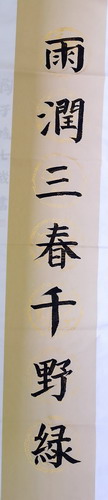 雨潤三春千野緑